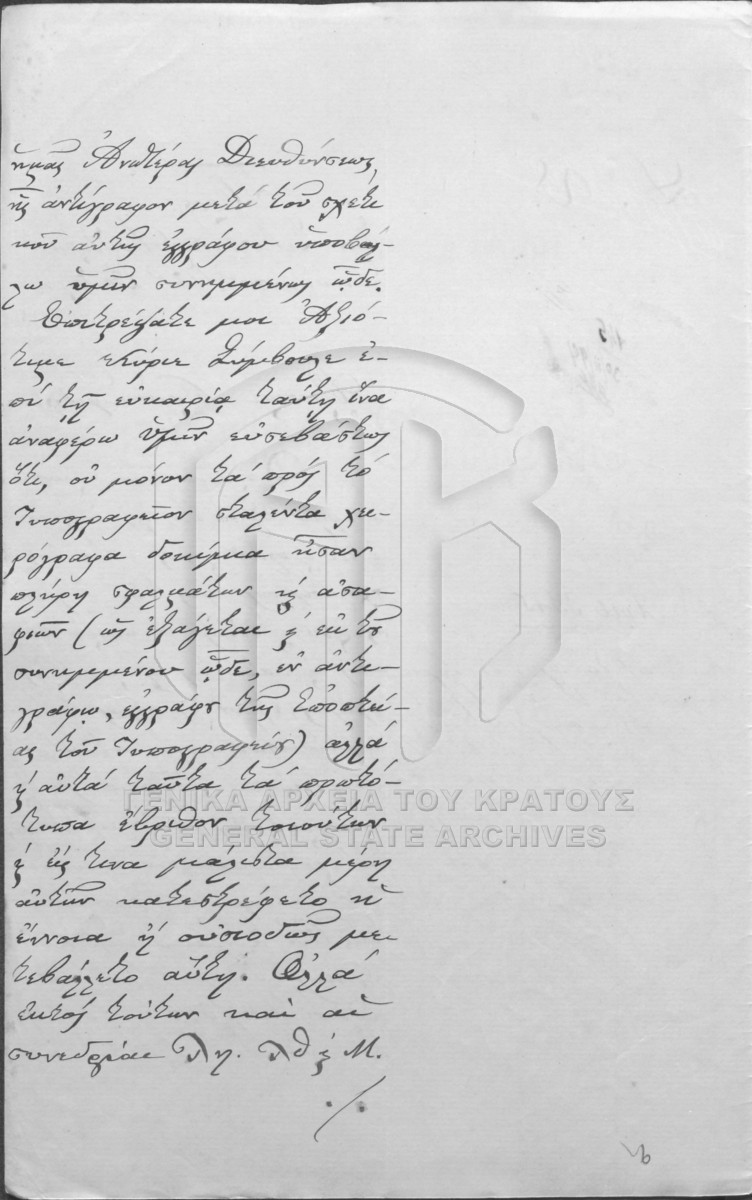 ἡμᾶς Ἀνωτέρας Διευθύνσεως,
ἧς ἀντίγραφον μετὰ τοῦ σχετι
κοῦ αὐτῆς ἐγγράφου ὑποβάλ-
λω ὑμῖν συνημμένως ὧδε.
Ἐπιτρέψατέ μοι Ἀξιό-
τιμε Κύριε Σύμβουλε ἐ-
πὶ τῇ εὐκαιρίᾳ ταύτῃ ἵνα
ἀναφέρω ὑμῖν εὐσεβάστως
ὅτι, οὐ μόνον τὰ πρὸς τὸ
Τυπογραφεῖον σταλέντα χει
ρόγραφα δοκίμια ἦσαν
πλήρη σφαλμάτων καὶ ἀσα-
φειῶν (ὡς ἐξάγεται καὶ ἐκ τοῦ
συνημμένου ὧδε, ἐν ἀντι-
γράφῳ, ἐγγράφου τῆς Ἐποπτεί-
ας τοῦ Τυπογραφείου) ἀλλὰ
καὶ αὐτὰ ταῦτα τὰ πρωτό-
τυπα ἔβριθον τοιούτων
καὶ εἴς τινα μάλιστα μέρη
αὐτῶν κατεστρέφετο ἡ
ἔννοια ἢ οὐσιωδῶς με
τεβάλλετο αὕτη. Ἀλλὰ
ἐκτὸς τούτων καὶ αἱ
συνεδρίαι ΛΗ. ΛΘ καὶ Μ.
./.
ΓΕΝΙΚΑ ΑΡΧΕΙΑ ΤΟΥ ΚΡΑΤΟΥΣ
GENERAL STATE ARCHIVES